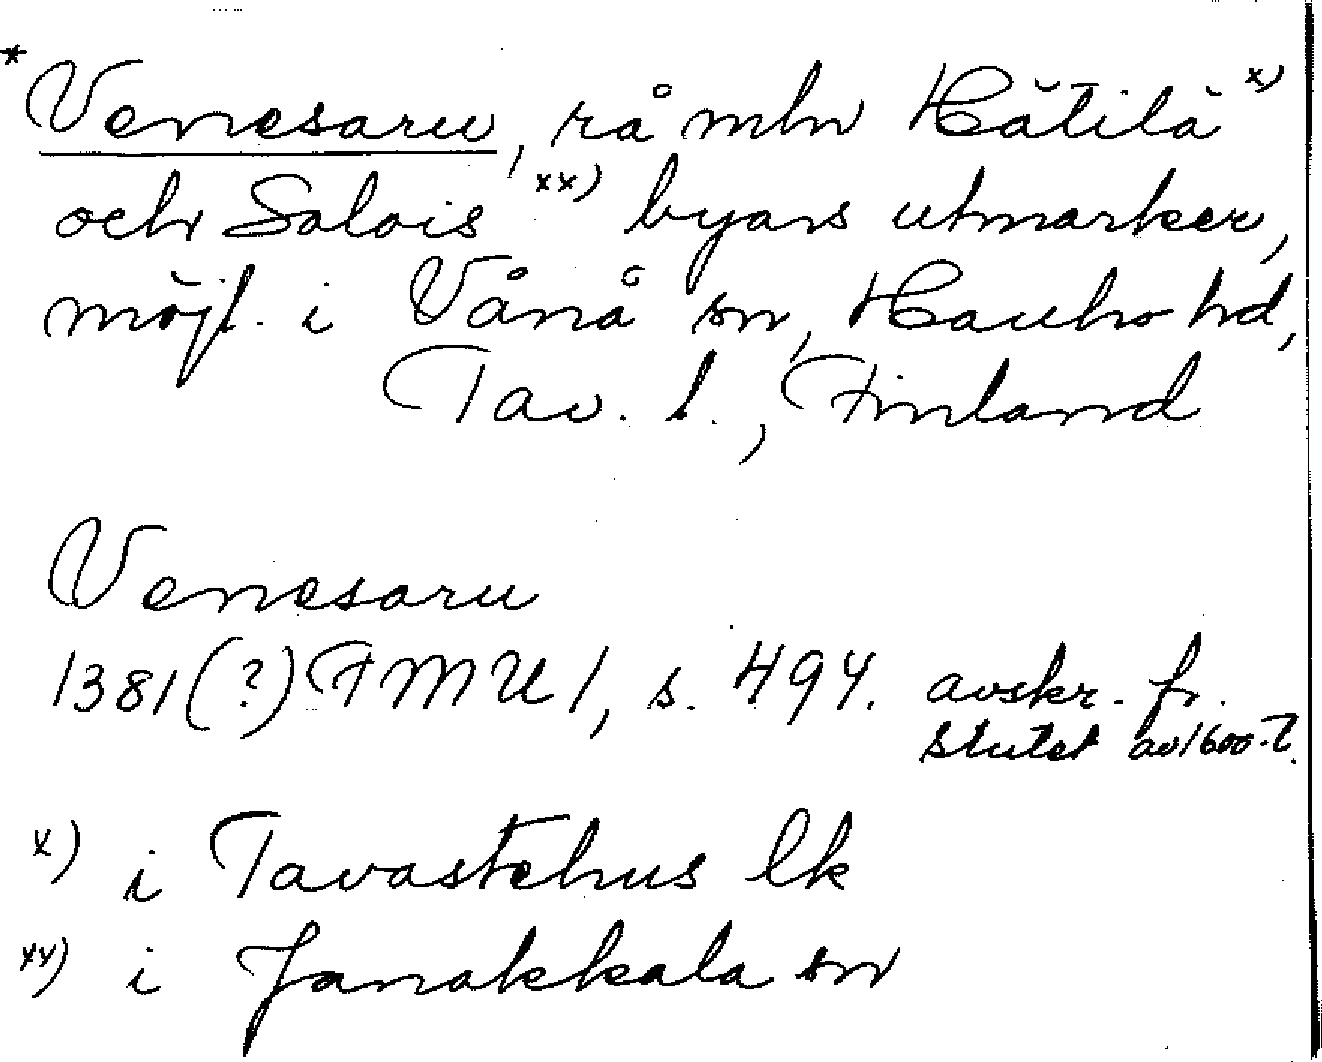 * Venesaru, rå mln Hätilä x)
och Salois xx) byars utmarker,
möjl. i Vånå sn, Hauho hd,
Tav. l., Finland
Venesaru
1381(?) FMU 1, s. 494. avskr. fr.
slutet av 1600-t.
x) i Tavastehus lk
xx) i Janakkala sn